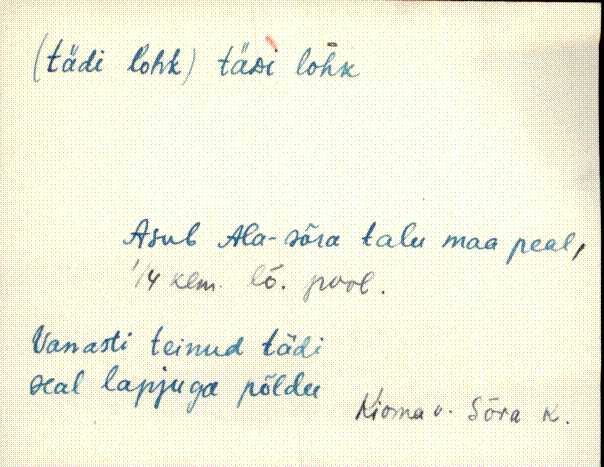 (tädi lohk) tädi lohk
Asub Ala-sõra talu maa peal,
1/4 klm. lõ. pool.
Vanasti teinud tädi
seal lapjuga põldu
Kioma v. Sõra k.